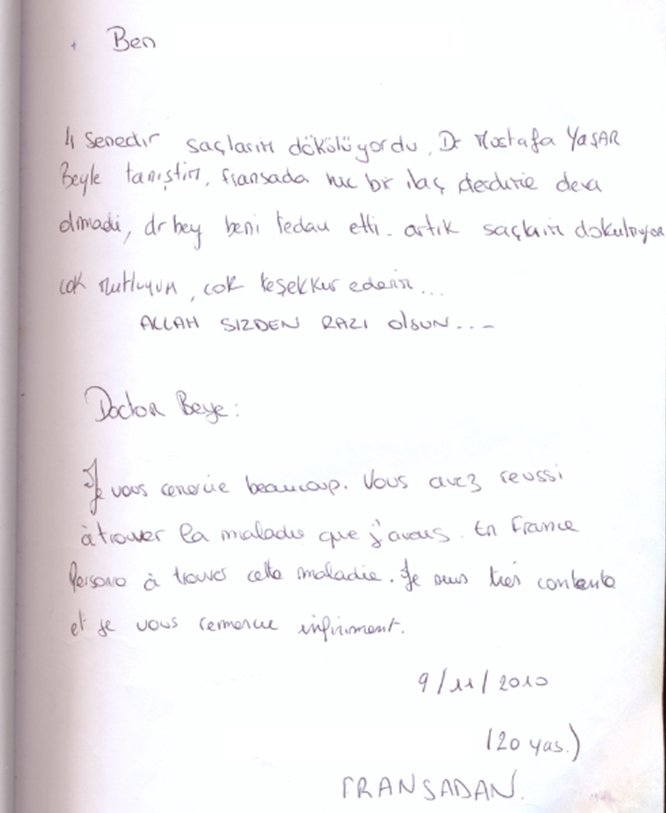 Ben
4 senedir saçlarım dökülüyordu, Dr Mostafa YAŞAR
Beyle tanıştım, fransada hic bir ilaç derdime deva
olmadi, dr bey beni tedavi etti. artık saçlarım dokulmyor
cok mutluyum, cok teşekkur ederim...
ALLAH SIZDEN RAZI olsun...
Doctor Beye:
Je vous remercie beaucoup. Vous avez reussi
à trouver la maladie que j'avais. En France
Persono à trouver cette maladie. Je suis très contente
et je vous remercie infiniment.
9/11/2010
(20 yas.)
FRANSADAN.